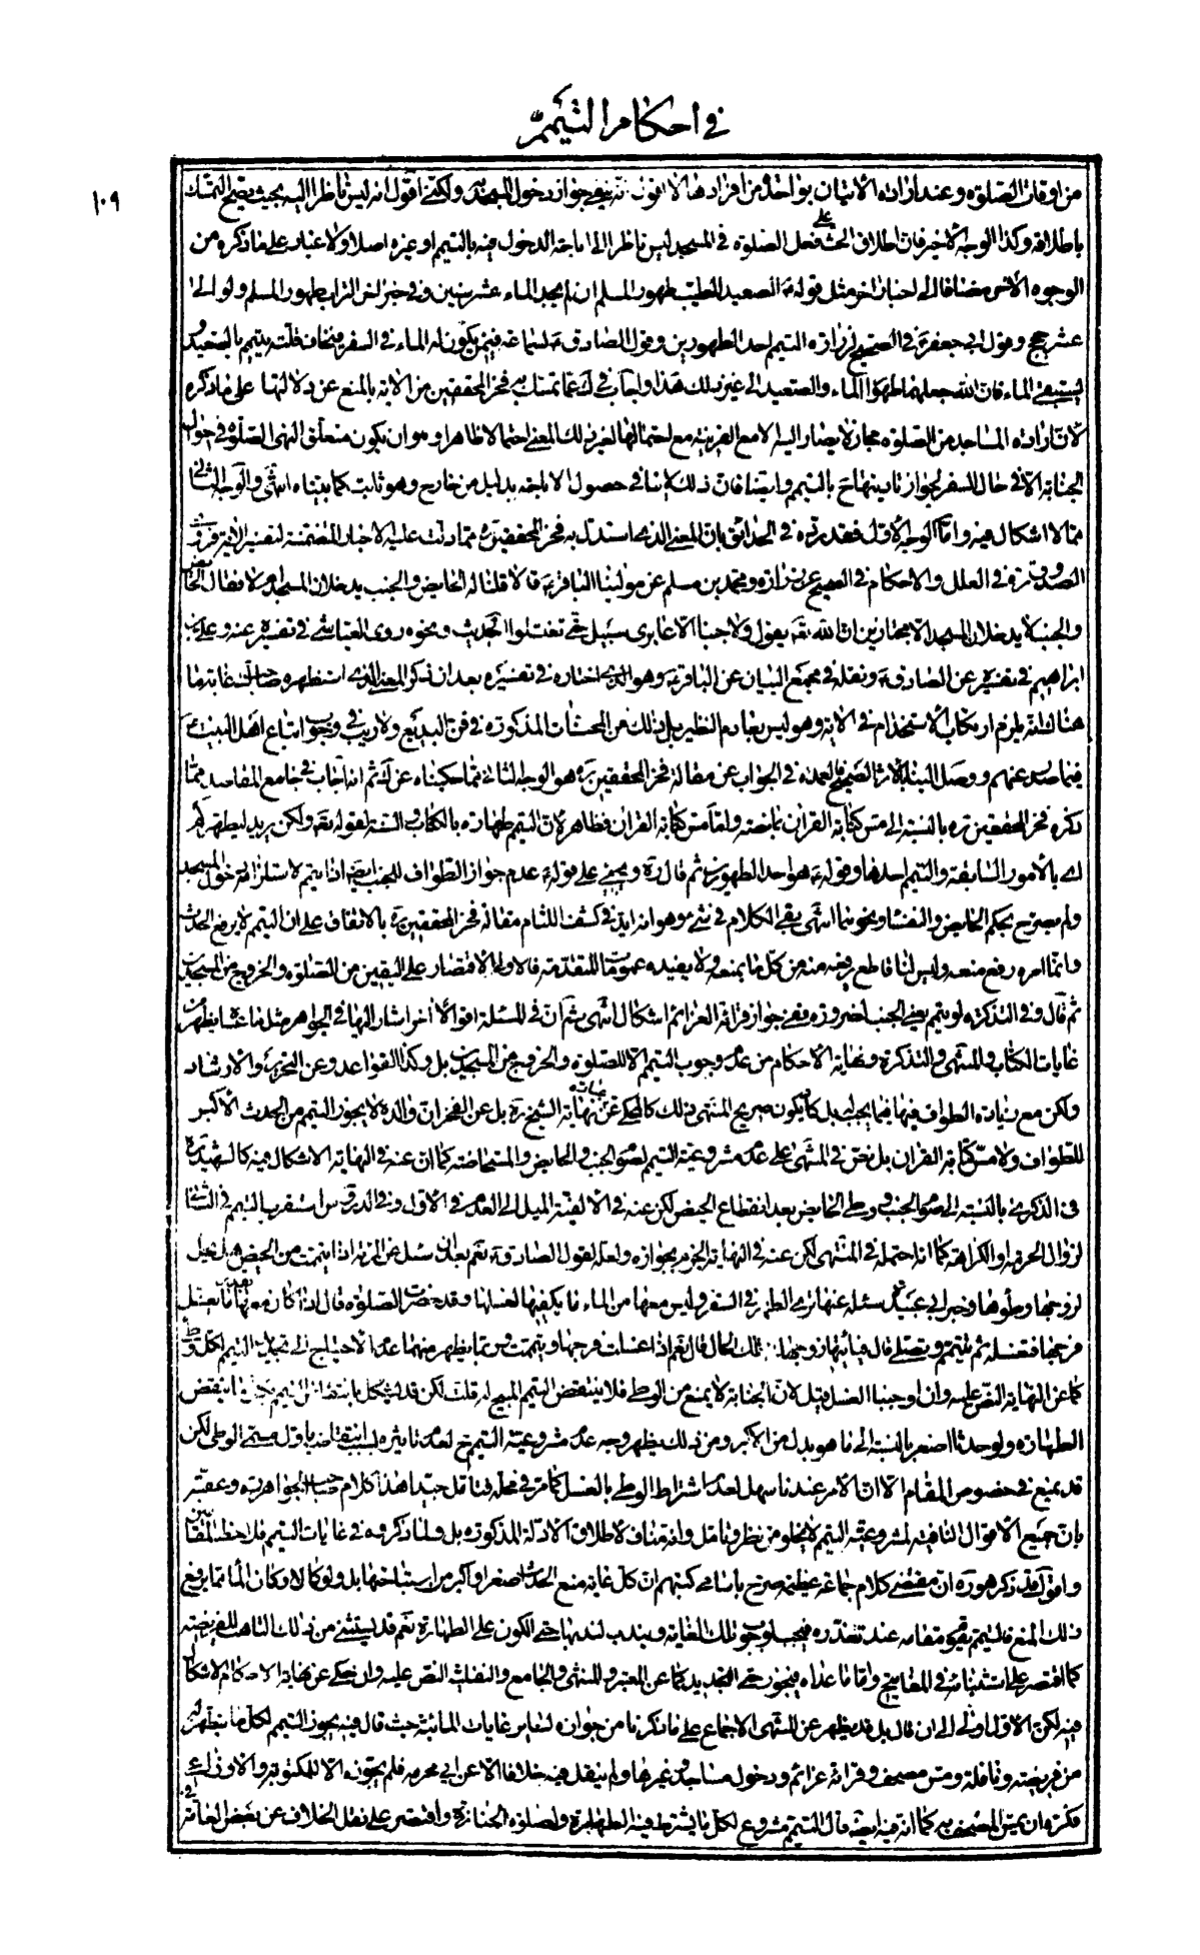 في احكام التيمم
١٠٩
من اوقات الصلوة وعند ارادة الاتيان بواحد من افرادها لا يقتضي جواز دخول المسجد ولكني اقول انه ليس ناظرا اليه بحيث يصح التمسك
باطلاقه وكذا الوجه الاخير فان اطلاق الحث على فعل الصلوة في المسجد ليس ناظرا الى اباحة الدخول فيه بالتيمم او غيره اصلا ولا غبار على ما ذكره من
الوجوه الأخر مضافا الى اخبار اخر مثل قوله ع الصعيد الطيب طهور المسلم ان لم يجد الماء عشر سنين وفي خبر اخر التراب طهور المسلم ولو الى
عشر حجج وقول ابي جعفر ع في الصحيح لزرارة التيمم احد الطهورين وقول الصادق ع لسماعة فيمن يكون له الماء في السفر فيخاف قلته يتيمم بالصعيد
ويستبقي الماء فان الله جعلهما طهورا الماء والصعيد الى غير ذلك هذا واجاب في ك عما تمسك به فخر المحققين من الاية بالمنع عن دلالتها على ما ذكره
لان ارادة المساجد من الصلوة مجاز لا يصار اليه الا مع القرينة مع احتمالها لغير ذلك المعنى احتمالا ظاهرا وهو ان يكون متعلق النهى الصلوة في حال
الجنابة الا في حال السفر لجواز تاديتها ح بالتيمم وايضا فان ذلك لا ينافي حصول الاباحة بدليل من خارج وهو ثابت كما بيناه انتهى والوجه الثاني
مما لا اشكال فيه واما الوجه الأول فقد رده في الحدائق بان المعنى الذي استدل به فخر المحققين ره مما دلت عليه الاخبار المتضمنة لتفسير الاية فروى
الصدوق ره في العلل والاحكام في الصحيح عن زرارة ومحمد بن مسلم عن مولينا الباقر ع قالا قلنا له الحائض والجنب يدخلان المسجد ام لا فقال الحائض
والجنب لا يدخلان المسجد الا مجتازين ان الله تعه يقول ولا جنبا الا عابري سبيل حتى تغتسلوا الحديث ونحوه روى العياشي في تفسيره عنه وعلي بن
ابراهيم في تفسيره عن الصادق ع ونقله في مجمع البيان عن الباقر ع وهو الذي اختاره في تفسيره بعد ان ذكر المعنى الذي استظهره صاحب ك غايته ما
هناك انه يلزم ارتكاب الاستخدام في الاية وهو ليس بعادم النظير بل ذلك من المحسنات المذكورة في فن البديع ولا ريب في وجوب اتباع اهل البيت ع
فيما صدر عنهم ووصل الينا بالاثر الصحيح فالعمدة في الجواب عن مقالة فخر المحققين ره هو الوجه الثاني مما حكيناه عن ك ثم انه اجاب في جامع المقاصد عما
ذكره فخر المحققين ره بالنسبة الى مس كتابة القران بما نصه واما مس كتابة القران فظاهر لان التيمم طهارة بالكتاب والسنة لقوله تعه ولكن يريد ليطهركم
اي بالأمور السابقة والتيمم احدها وقوله ع هو احد الطهورين ثم قال ره ويجيء على قوله عدم جواز الطواف للجنب ايضا اذا تيمم لاستلزامه دخول المسجد
ولم يصرح بحكم الحائض والنفساء ونحوهما انتهى بقى الكلام في شيء وهو انه ايد في كشف اللثام مقالة فخر المحققين ره بالاتفاق على ان التيمم لا يرفع الحدث
وانما اثره رفع منعه وليس لنا قاطع برفعه منه من كل ما يمنعه ولا يفيده عموما المتقدمة فالاولى الاقتصار على اليقين من الصلوة والخروج من المسجدين
ثم قال وفي التذكرة لو تيمم يعني الجنب لضرورة ففي جواز قرائة العزائم اشكال انتهى ثم ان في المسئلة اقوالا اخر اشار اليها في الجواهر مثل ما عساه يظهر من
غايات الكتاب والمنتهى والتذكرة ونهاية الاحكام من عدم وجوب التيمم الا للصلوة والخروج من المسجدين بل وكذا القواعد وعن التحرير والارشاد
ولكن مع زيادة الطواف فيها فيما يجب له بل كاد يكون صريح المنتهى ذلك كالمحكي عن نهاية الشيخ ره بل عن الفخر ان والده لا يجوز التيمم من الحدث الأكبر
للطواف ولا مس كتابة القران بل نص في المنتهى على عدم مشروعية التيمم لصوم الجنب والحايض والمستحاضة كما ان عنه في النهاية الاشكال فيه كالشهيد ره
في الذكرى بالنسبة الى صوم الجنب ووطي الحايض بعد انقطاع الحيض لكن عنه في الالفية الميل الى العدم في الأول وفي الدروس استقر بالتيمم في الثاني
لزوال الحرمة او الكراهة كما انه احتمله في المنتهى لكن عنه في النهاية الجزم بجوازه ولعله لقول الصادق ع نعم بعد ان سئل عن المرئة اذا تيممت من الحيض هل تحل
لزوجها وطؤها وخبر ابي عبيدة سئله عنها ترى الطهر في السفر وليس معها من الماء ما يكفيها لغسلها وقد حضرت الصلوة قال اذا كان معها بقدر ما تغسل
فرجها فتغسله ثم تتيمم وتصلى قال فيأتيها زوجها في تلك الحال قال نعم اذا غسلت فرجها وتيممت وربما يظهر منهما عدم الاحتياج الى تجديد التيمم لكل وطي
كما عن النهاية النص عليه وان اوجبنا الغسل قيل لان الجنابة لا يمنع من الوطي فلا ينتقض التيمم المبيح له قلت لكن قد يشكل بانتقاض التيمم بحدث انتقض
الطهارة ولو حدثا اصغر بالنسبة الى ما هو بدل من الأكبر ومن ذلك يظهر وجه عدم مشروعية التيمم ح لعدم تاثيره بسبب انتقاضه باول مسمى الوطي لكن
قد يمنع في خصوص المقام الا ان الامر عندنا سهل لعدم اشتراط الوطي بالغسل كما مر في محله فتامل جيدا هذا كلام صاحب الجواهر ره وعقبه
بان جميع الاقوال النافية لمشروعية التيمم لا يخلو من نظر وتامل وانه مناف لاطلاق الادلة المذكورة بل ولما ذكروه في غايات التيمم فلاحظ المقامين
واقول قد ذكر هو ره ان مقتضى كلام جماعة عظيمة صرح باسامي كتبهم ان كل غاية منع الحدث اصغر او اكبر من استباحتها بل ولو كمالا وكان الماء انما يرفع
ذلك المنع فالتيمم يقوم مقامه عند تعذره فيجب لوجوب تلك الغاية ويندب لندبها حتى الكون على الطهارة نعم قد يستثنى من ذلك التاهب للفريضة
كما اقتصر على استثنائه في المفاتيح واما ما عداه فيجوز حتى التجديد كما عن المعتبر والمنتهى والجامع والنفلية النص عليه وان حكى عن نهاية الاحكام الاشكال
فيه لكن الأول اولى الى ان قال بل قد يظهر عن المنتهى الاجماع على ما ذكرنا من جوازه لسائر غايات المائية حيث قال فيه يجوز التيمم لكل ما يتطهر له
من فريضة ونافلة ومس مصحف وقرائة عزائم ودخول مساجد وغيرها ولم ينقل فيه خلافا الا عن ابي مخرمة فلم يجوزه الا للمكتوبة والاوزاعي
فكره ان يمس المصحف به كما انه فيه ايضا قال التيمم مشروع لكل ما يشترط فيه الطهارة ولصلوة الجنازة واقتصر على نقل الخلاف عن بعض العامة في